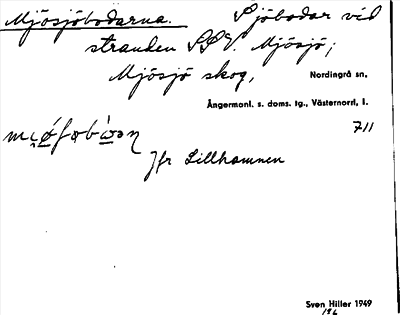 Mjösjöbodarna. Sjöbodar vid
stranden SSV. Mjösjö;
Mjösjö skog,
Nordingrå sn,
Ångermanl. s. doms. tg., Västernorrl. l.
711
Jfr Lillhamnen
Sven Hiller 1949